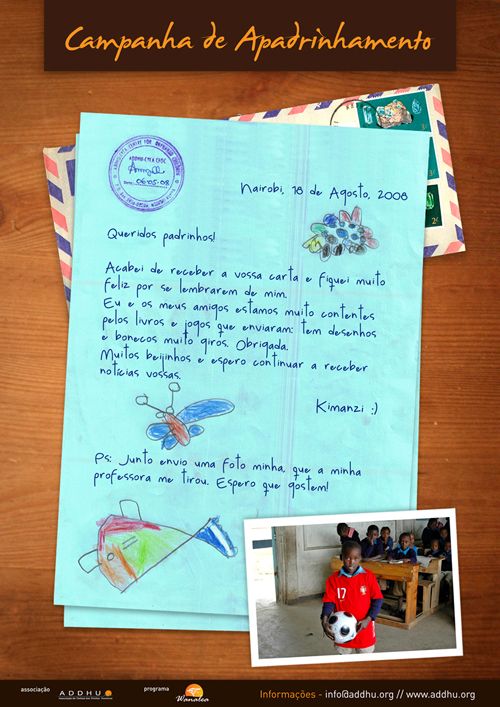 Campanha de Apadrinhamento
ADDHU-CTEA CFOC
Date: 06.05.08
Nairobi, 18 de Agosto, 2008
Queridos padrinhos!
Acabei de receber a vossa carta e fiquei muito
feliz por se lembrarem de mim.
Eu e os meus amigos estamos muito contentes
pelos livros e jogos que enviaram: tem desenhos
e bonecos muito giros. Obrigada.
Muitos beijinhos e espero continuar a receber
notícias vossas.
Kimanzi :)
Ps: Junto envio uma foto minha, que a minha
professora me tirou. Espero que gostem!
17
associação
ADDHU
programa
Wanalea
Informações - info@addhu.org // www.addhu.org